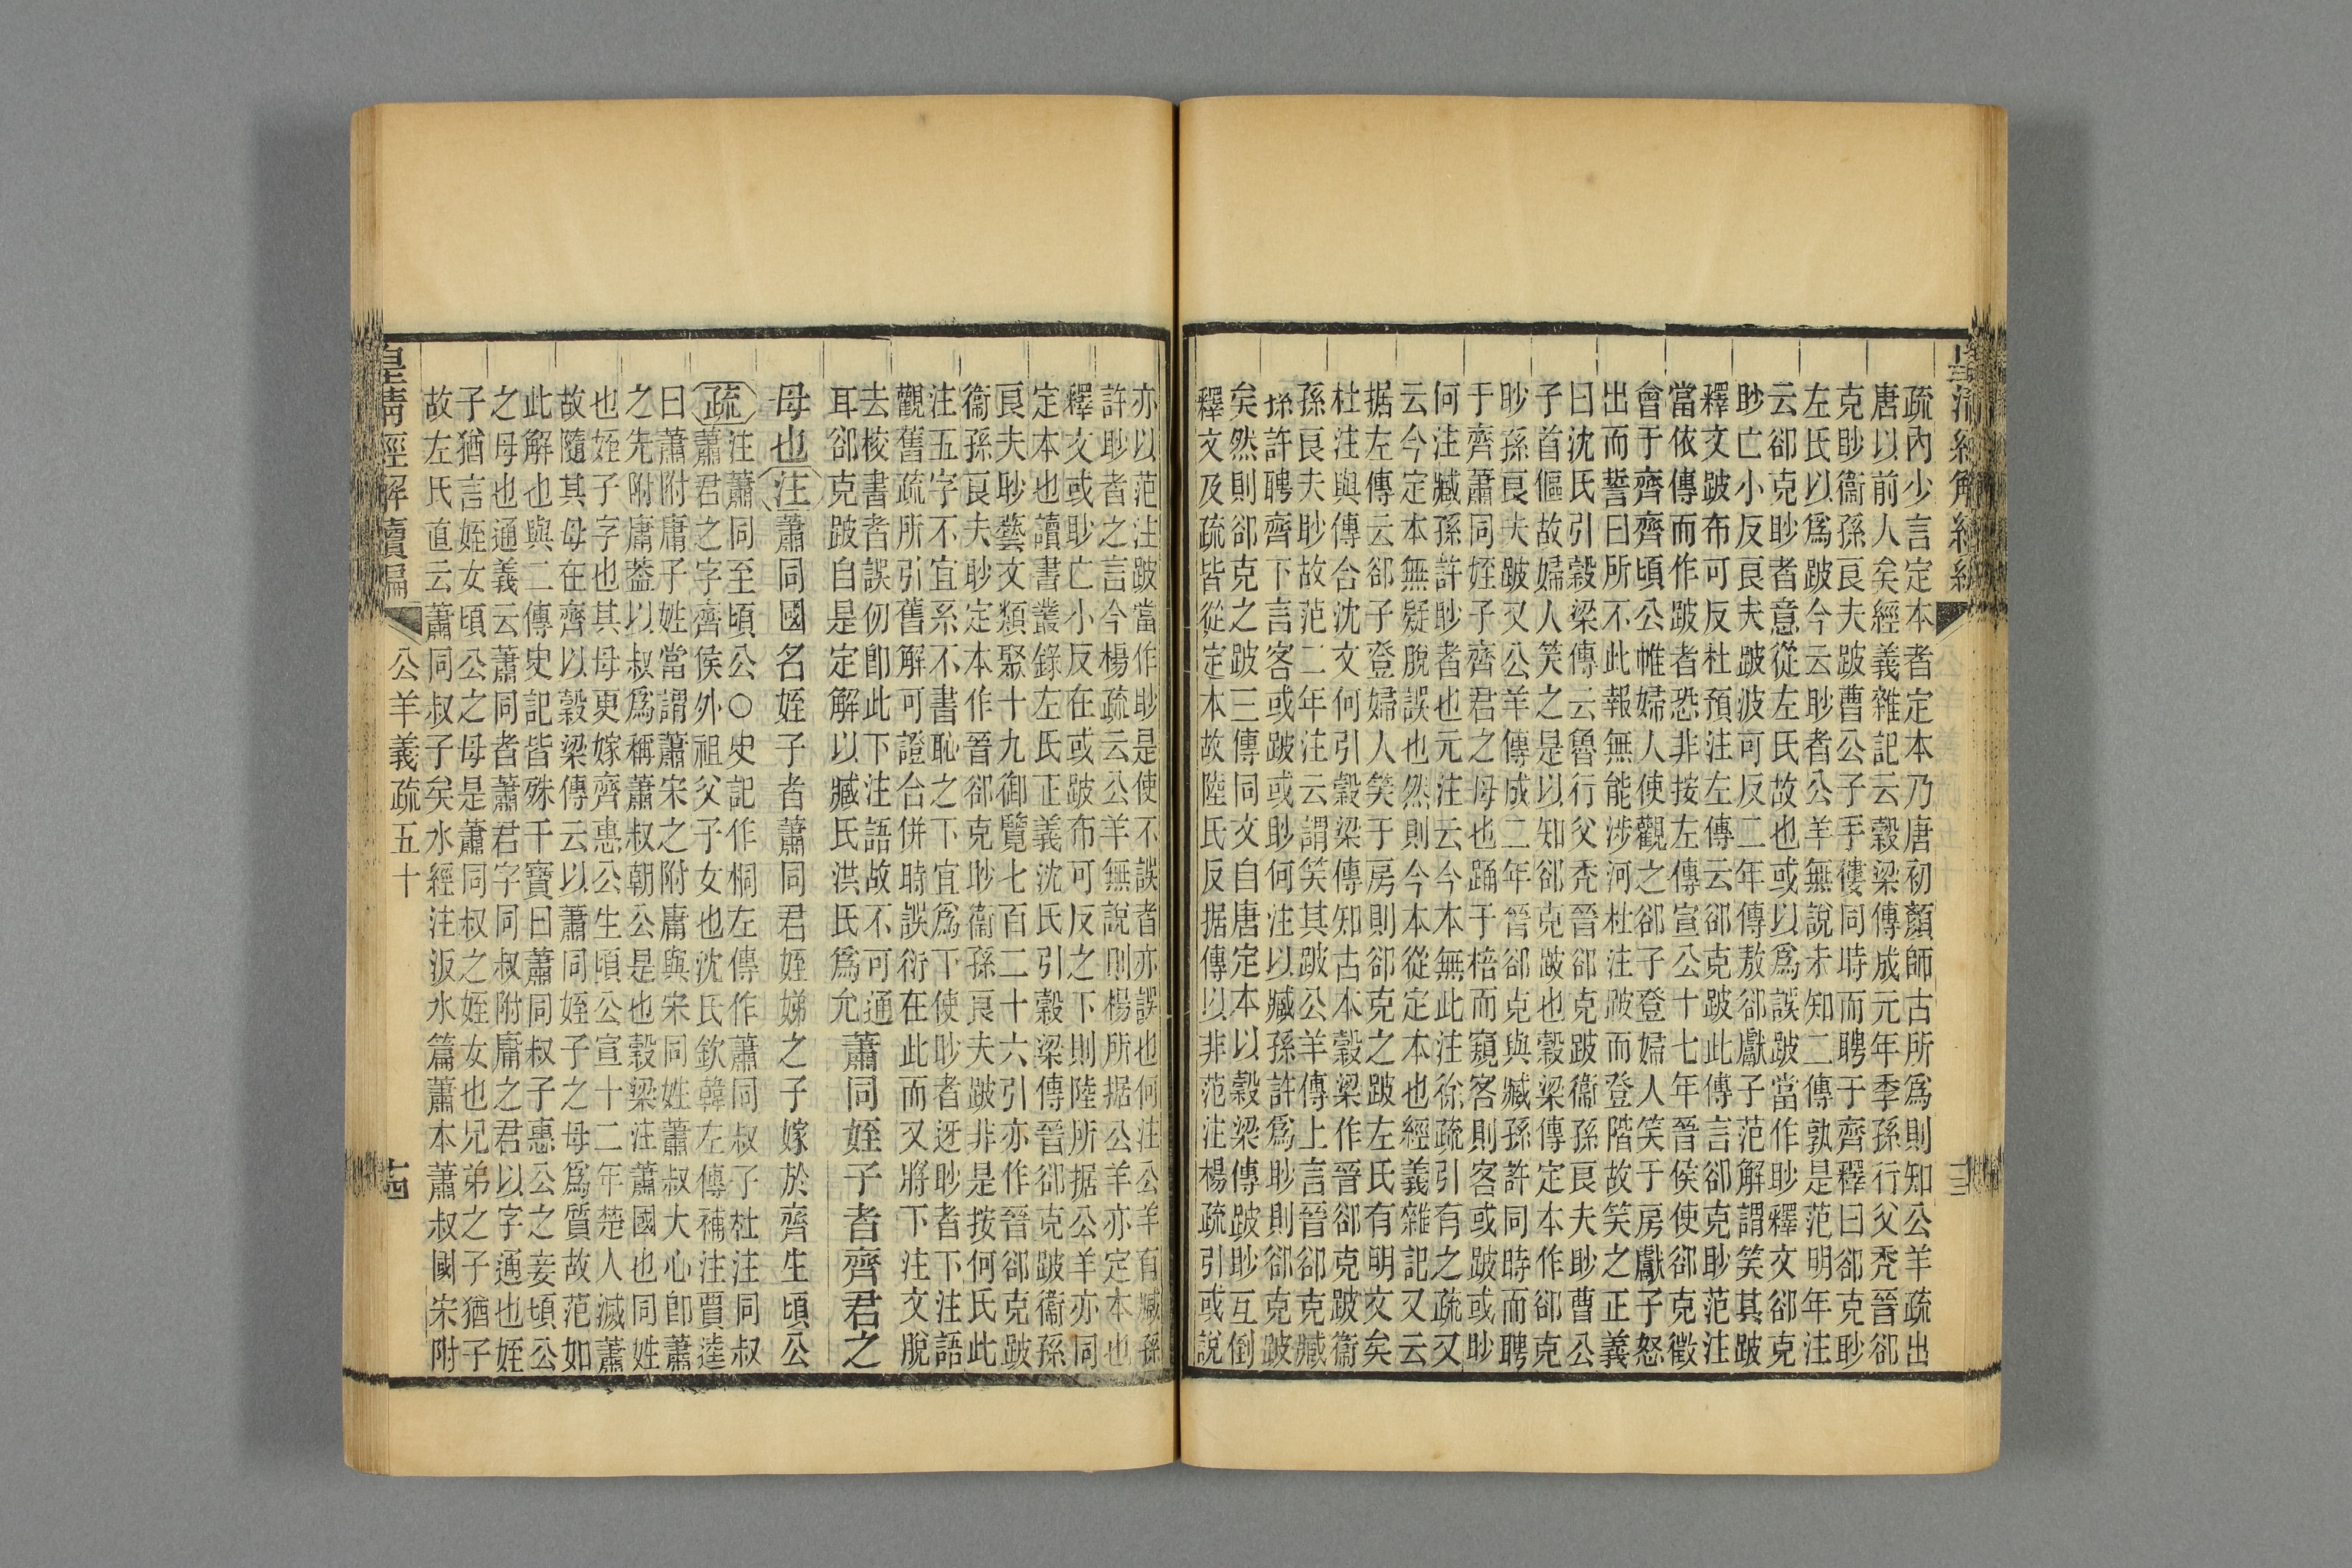 疏內少言定本者定本乃唐初顏師古所為則知公羊疏出
唐以前人矣經義雜記云穀梁傳成元年季孫行父秃晉郤
克眇衞孫良夫跛曹公子手僂同時而聘于齊釋曰郤克眇
左氏以爲跛今云眇者公羊無說未知二傳孰是范明年注
云郤克眇者意從左氏故也或以爲誤跛當作眇釋文郤克
眇亡小反良夫跛波可反二年傳敖郤獻子范解謂笑其跛
釋文跛布可反杜預注左傳云郤克跛此傳言郤克眇范注
當依傳而作跛者恐非按左傳宣公十七年晉侯使郤克徵
會于齊齊頃公帷婦人使觀之郤子登婦人笑于房獻子怒
出而誓曰所不此報無能涉河杜注跛而登階故笑之正義
曰沈氏引穀梁傳云魯行父秃晉郤克跛衞孫良夫眇曹公
子首傴故婦人笑之是以知郤克跛也穀梁傳定本作郤克
眇孫良夫跛又公羊傳成二年晉郤克與臧孫許同時而聘
于齊蕭同姪子齊君之母也踊于棓而窺客則客或跛或眇
何注臧孫許眇者也元注云今本無此注徐疏引有之疏又
云今定本無疑脫誤也然則今本從定本也經義雜記又云
据左傳云郤子登婦人笑于房則郤克之跛左氏有明文矣
杜注與傳合沈文何引穀梁傳知古本穀梁作晉郤克跛衞
孫良夫眇故范二年注云謂笑其跛公羊傳上言晉郤克臧
孫許聘齊下言客或跛或眇何注以臧孫許爲眇則郤克跛
矣然則郤克之跛三傳同文自唐定本以穀梁傳跛眇互倒
釋文及疏皆從定本故陸氏反据傳以非范注楊疏引或說
亦以范注跛當作眇是使不誤者亦誤也何注公羊有臧孫
許眇者之言今楊疏云公羊無說則楊所据公羊亦定本也
釋文或眇亡小反在或跛布可反之下則陸所据公羊亦同
定本也讀書叢錄左氏正義沈氏引穀梁傳晉郤克跛衞孫
良夫眇藝文類聚十九御覽七百二十六引亦作晉郤克跛
衞孫良夫眇定本作晉郤克眇衞孫良夫跛非是按何氏此
注五字不宜系不書恥之下宜爲下使眇者迓眇者下注語
觀舊疏所引舊解可證合併時誤衍在此而又將下注文脫
去校書者誤仞卽此下注語故不可通
耳郤克跛自是定解以臧氏洪氏爲允蕭同姪子者齊君之
母也注蕭同國名姪子者蕭同君姪娣之子嫁於齊生頃公
疏注蕭同至頃公○史記作桐左傳作蕭同叔子杜注同叔
蕭君之字齊侯外祖父子女也沈氏欽韓左傳補注賈逵
曰蕭附庸子姓當謂蕭宋之附庸與宋同姓蕭叔大心卽蕭
之先附庸葢以叔爲稱蕭叔朝公是也穀梁注蕭國也同姓
也姪子字也其母更嫁齊惠公生頃公宣十二年楚人滅蕭
故隨其母在齊以穀梁傳云以蕭同姪子之母爲質故范如
此解也與二傳史記皆殊干寶曰蕭同叔子惠公之妾頃公
之母也通義云蕭同者蕭君字同叔附庸之君以字通也姪
子猶言姪女頃公之母是蕭同叔之姪女也兄弟之子猶子
故左氏直云蕭同叔子矣水經注汳水篇蕭本蕭叔國宋附
皇清經解續編
公羊義疏五十
十四